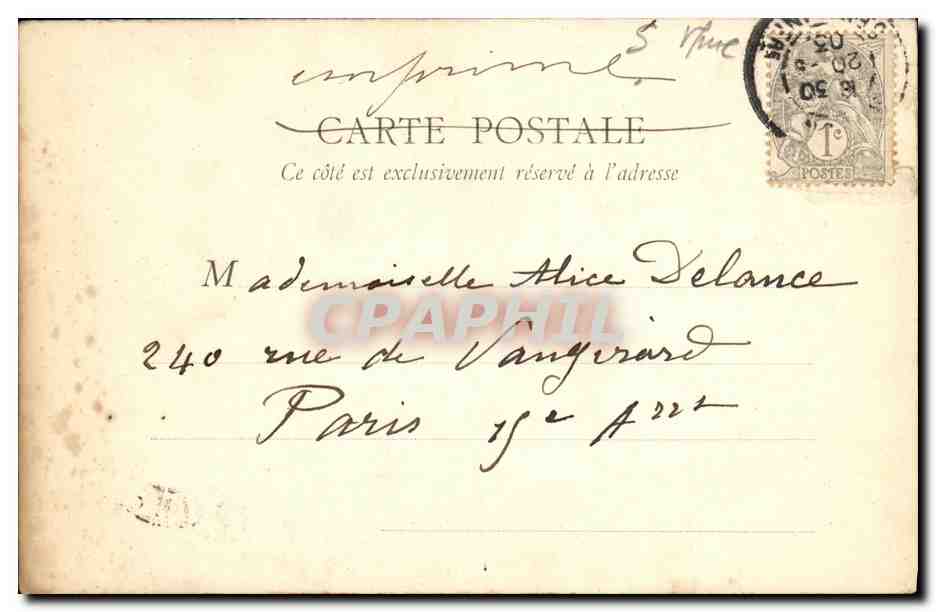 imprimé
CARTE POSTALE
Ce côté est exclusivement réservé à l'adresse
1c
POSTES
Mademoiselle Alice Delance
CPAPHIL
240 rue de Vaugirard
Paris 15e Arrt